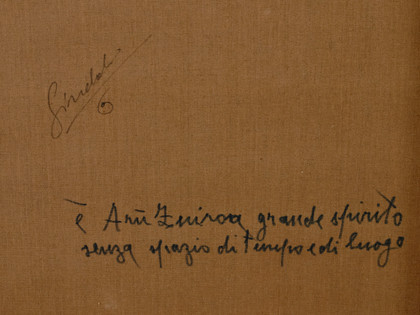 è Arū Zniroa grande spirito
senza spazio di tempo e di luogo